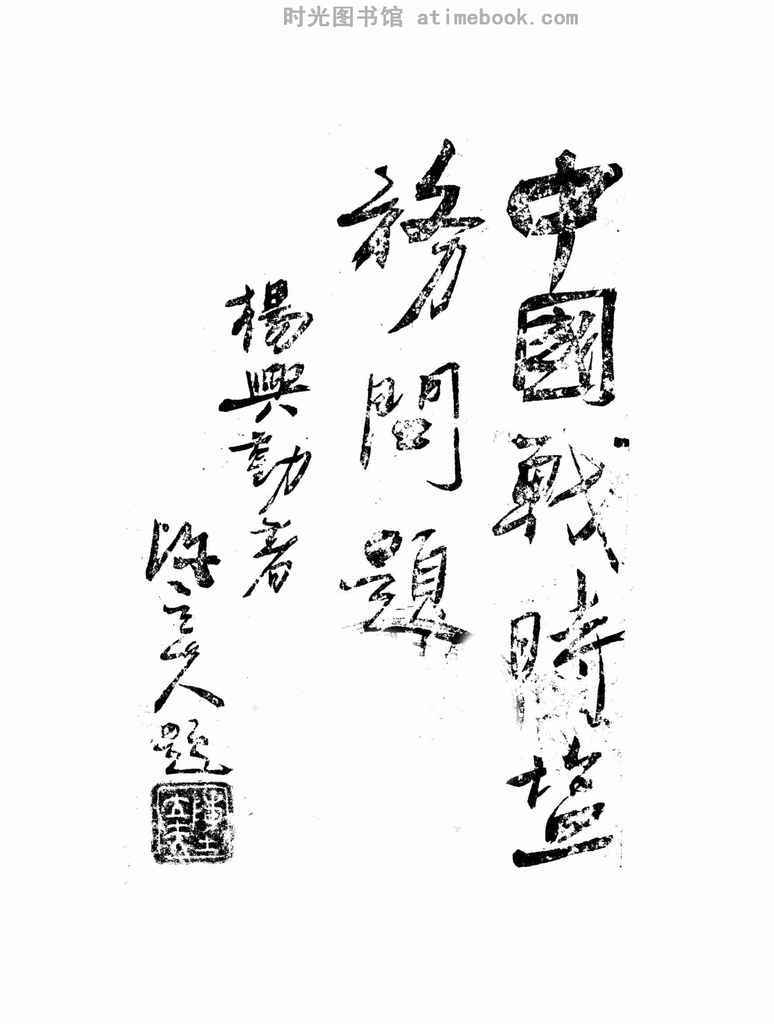 时光图书馆 atimebook.com
中國戰時塩
務問題
楊興勤著
題